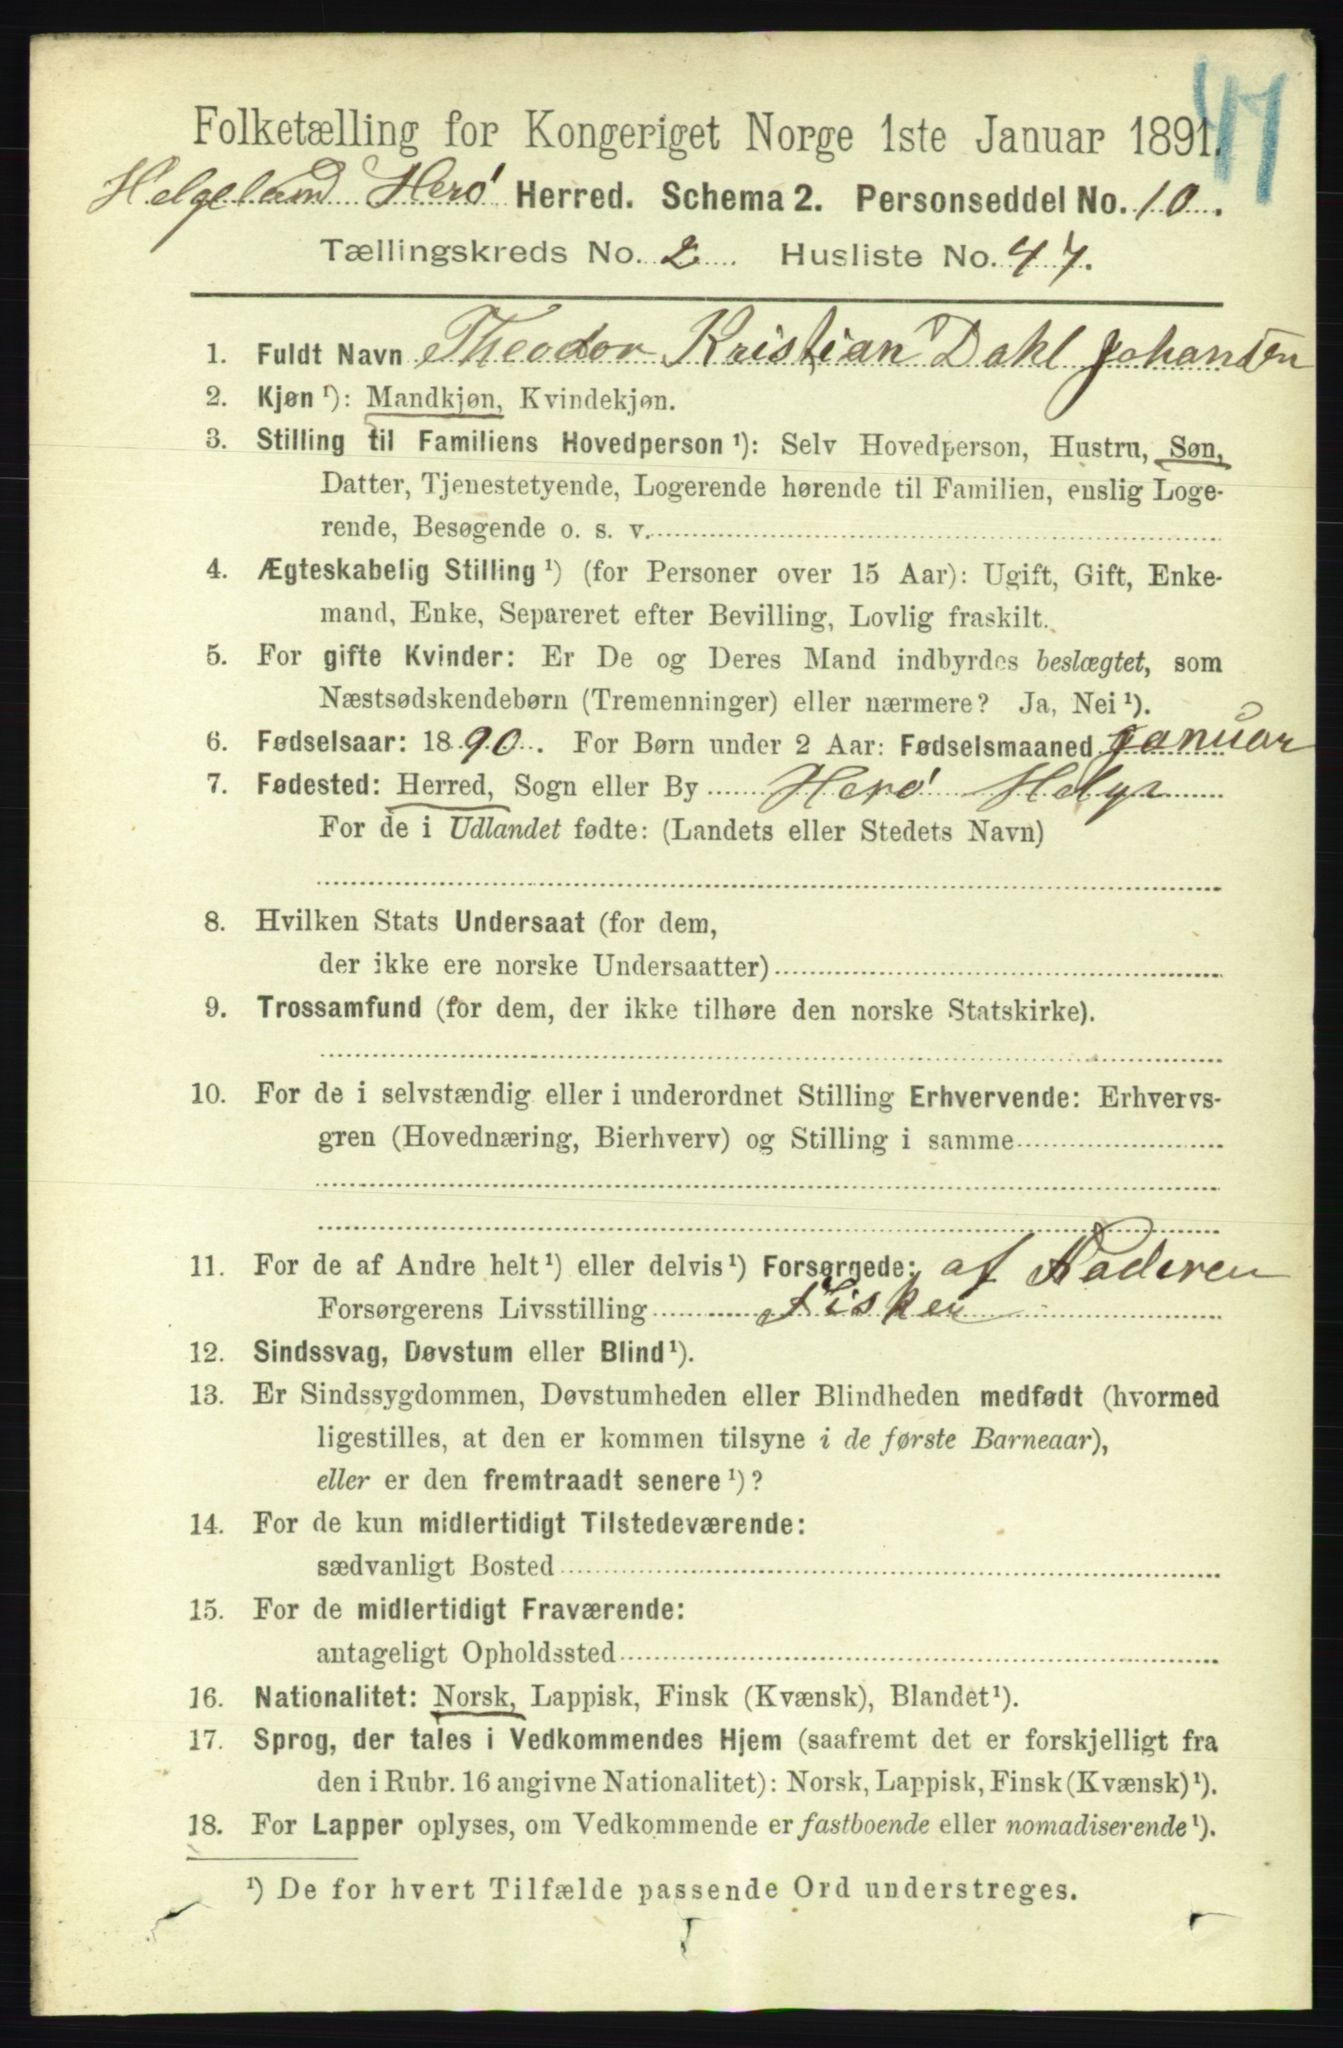 47
Folketælling for Kongeriget Norge 1ste Januar 1891.
Helgeland Herø Herred. Schema 2. Personseddel No. 10.
Tællingskreds No. 2. Husliste No. 47.
1. Fuldt Navn Theodor Kristian Dahl Johansen
2. Kjøn ¹): Mandkjøn, Kvindekjøn.
3. Stilling til Familiens Hovedperson ¹): Selv Hovedperson, Hustru, Søn,
Datter, Tjenestetyende, Logerende hørende til Familien, enslig Loge-
rende, Besøgende o. s. v.
4. Ægteskabelig Stilling ¹) (for Personer over 15 Aar): Ugift, Gift, Enke-
mand, Enke, Separeret efter Bevilling, Lovlig fraskilt.
5. For gifte Kvinder: Er De og Deres Mand indbyrdes beslægtet, som
Næstsødskendebørn (Tremenninger) eller nærmere? Ja, Nei ¹).
6. Fødselsaar: 1890. For Børn under 2 Aar: Fødselsmaaned Januar
7. Fødested: Herred, Sogn eller By Herø Helgl
For de i Udlandet fødte: (Landets eller Stedets Navn)
8. Hvilken Stats Undersaat (for dem,
der ikke ere norske Undersaatter)
9. Trossamfund (for dem, der ikke tilhøre den norske Statskirke).
10. For de i selvstændig eller i underordnet Stilling Erhvervende: Erhvervs-
gren (Hovednæring, Bierhverv) og Stilling i samme
11. For de af Andre helt ¹) eller delvis ¹) Forsørgede: af Faderen
Forsørgerens Livsstilling Fisker
12. Sindssvag, Døvstum eller Blind ¹).
13. Er Sindssygdommen, Døvstumheden eller Blindheden medfødt (hvormed
ligestilles, at den er kommen tilsyne i de første Barneaar),
eller er den fremtraadt senere ¹)?
14. For de kun midlertidigt Tilstedeværende:
sædvanligt Bosted
15. For de midlertidigt Fraværende:
antageligt Opholdssted
16. Nationalitet: Norsk, Lappisk, Finsk (Kvænsk), Blandet ¹).
17. Sprog, der tales i Vedkommendes Hjem (saafremt det er forskjelligt fra
den i Rubr. 16 angivne Nationalitet): Norsk, Lappisk, Finsk (Kvænsk) ¹).
18. For Lapper oplyses, om Vedkommende er fastboende eller nomadiserende ¹).
¹) De for hvert Tilfælde passende Ord understreges.